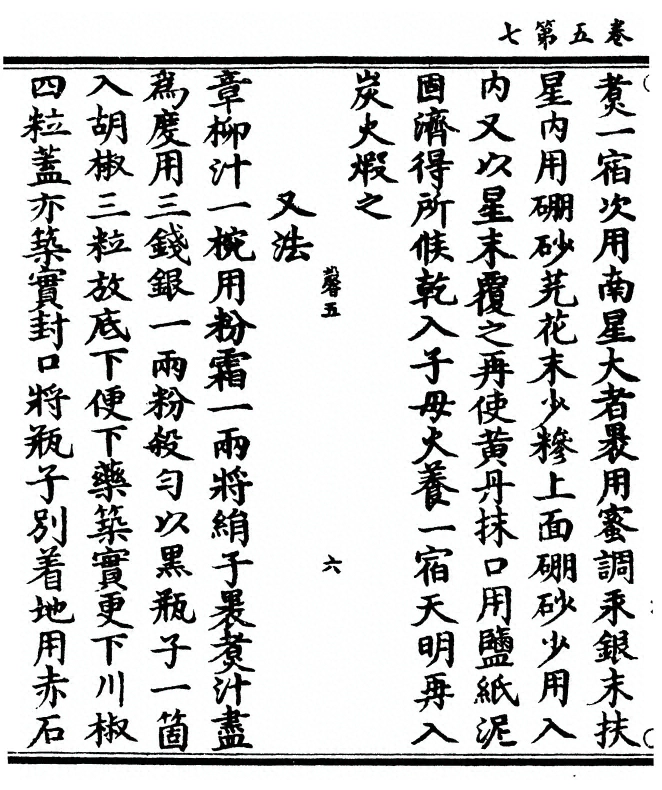 卷五第七
煑一宿次用南星大者褁用蜜調汞銀末扶
星内用硼砂芫花末少糝上面硼砂少用入
内又以星末覆之再使黄丹抹口用鹽紙泥
固濟得所候乾入子母火養一宿天明再入
炭火煆之
馨五
六
又法
章柳汁一椀用粉霜一兩將絹子褁煑汁盡
為度用三錢銀一兩粉殺匀以黑瓶子一箇
入胡椒三粒放底下便下藥築實更下川椒
四粒蓋亦築實封口將瓶子別着地用赤石